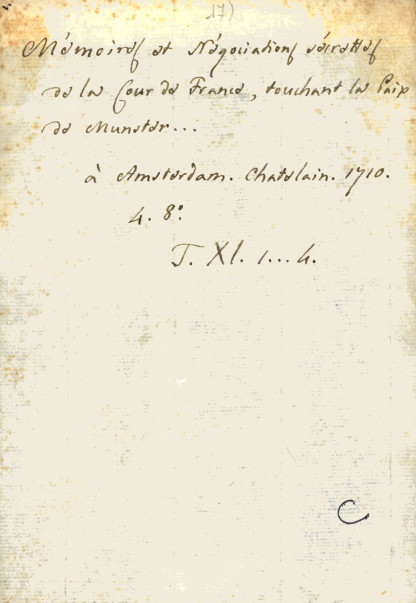 17)
Mémoires et Négociations sécrettes
de la Cour de France, touchant la Paix
de Munster...
à Amsterdam. Chatelain. 1710.
4. 8º.
T. XI. 1...4.
C